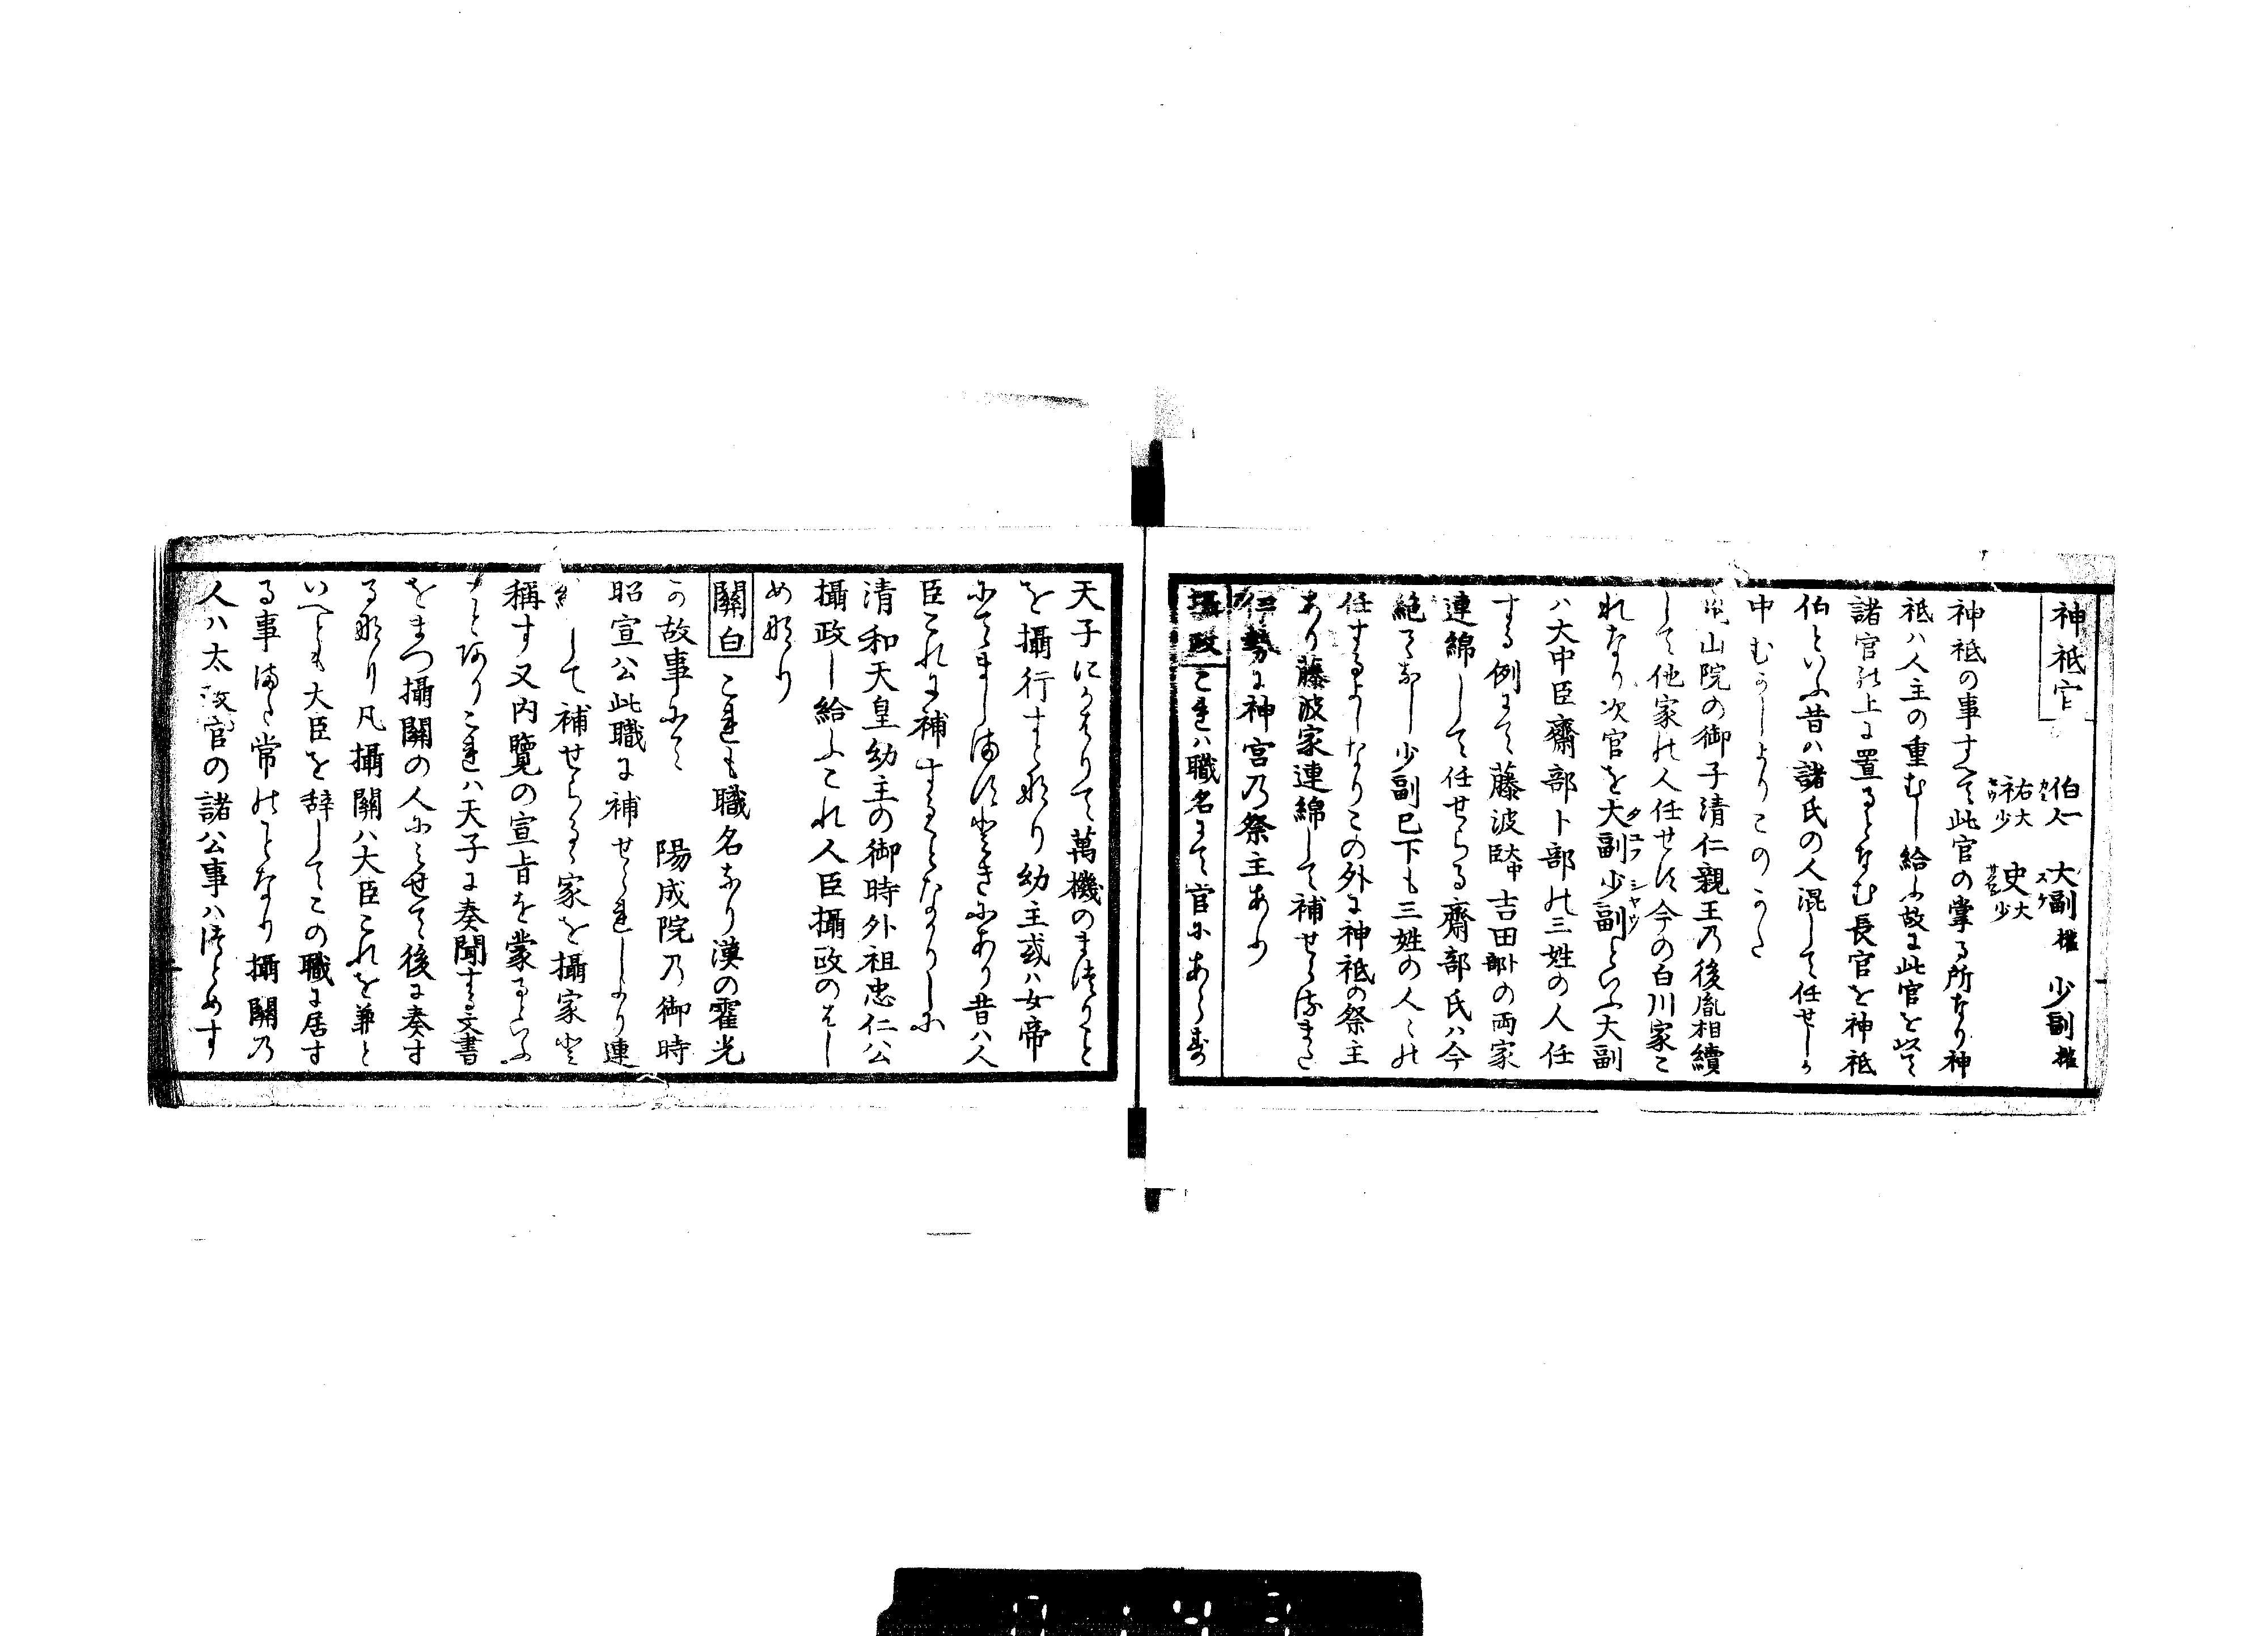 神祇官　伯一人　大副權　少副權
祐大少　史大少
神祇の事すへて此官の掌る所なり神
祇ハ人主の重むし給ふ故に此官を以て
諸官の上に置るとなむ長官を神祇
伯といふ昔ハ諸氏の人混して任せしか
中むかしよりこのかた
山院の御子清仁親王乃後胤相續
して他家の人任せす今の白川家こ
れなり次官を大副少副といふ大副
ハ大中臣齋部卜部の三姓の人任
する例にて藤波大中臣吉田卜部の両家
連綿して任せらる齋部氏ハ今
絶てなし少副已下も三姓の人々の
任するよしなりこの外に神祇の祭主
あり藤波家連綿して補せらるまた
伊勢に神宮乃祭主あり
攝政　これハ職名にて官にあらす
天子にかはりて萬機のまつりこと
を攝行すと也幼主或ハ女帝
にてましますときにあり昔ハ人
臣これに補することなかりしに
清和天皇幼主の御時外祖忠仁公
攝政し給ふこれ人臣攝政のはし
めなり
關白　これも職名なり漢の霍光
か故事にて　陽成院乃御時
昭宣公此職に補せられしより連
して補せらるゝ家を攝家と
稱す又内覽の宣旨を蒙るといふ
ことありこれハ天子に奏聞する文書
をまつ攝關の人にみせて後に奏す
るなり凡攝關ハ大臣これを兼と
いへとも大臣を辞してこの職に居す
る事また常のことなり攝關乃
人ハ太政官の諸公事ハつとめす